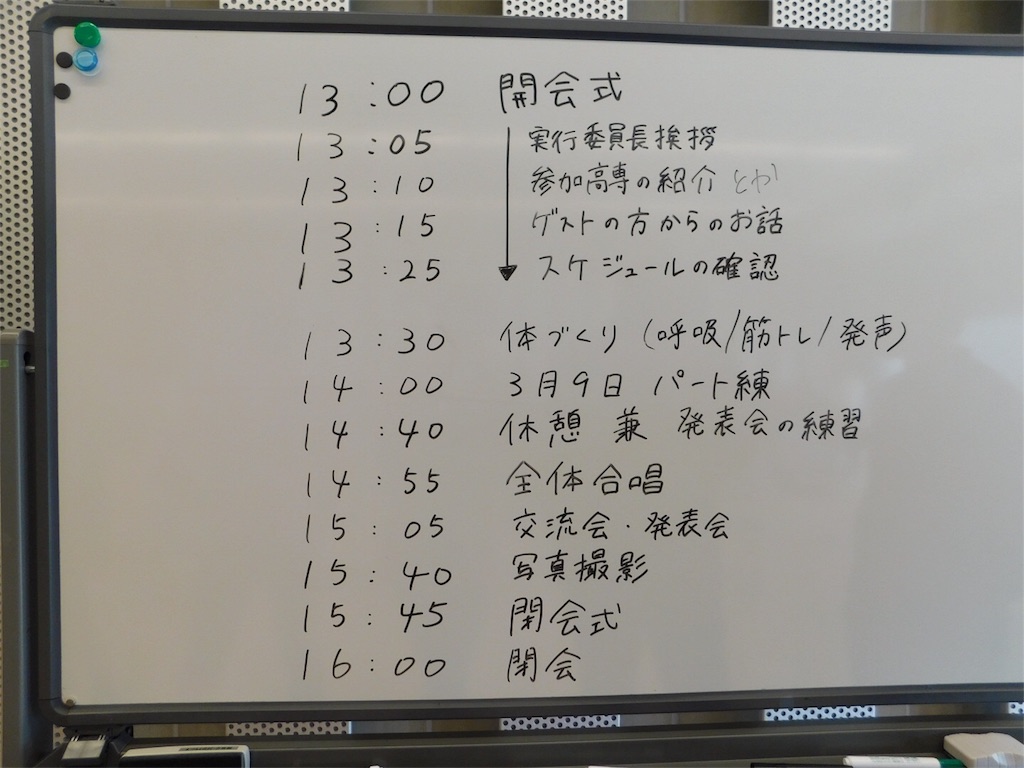 13:00 開会式
13:05 実行委員長挨拶
13:10 参加高専の紹介 とか
13:15 ゲストの方からのお話
13:25 スケジュールの確認
13:30 体づくり (呼吸/筋トレ/発声)
14:00 3月9日 パート練
14:40 休憩 兼 発表会の練習
14:55 全体合唱
15:05 交流会・発表会
15:40 写真撮影
15:45 閉会式
16:00 閉会